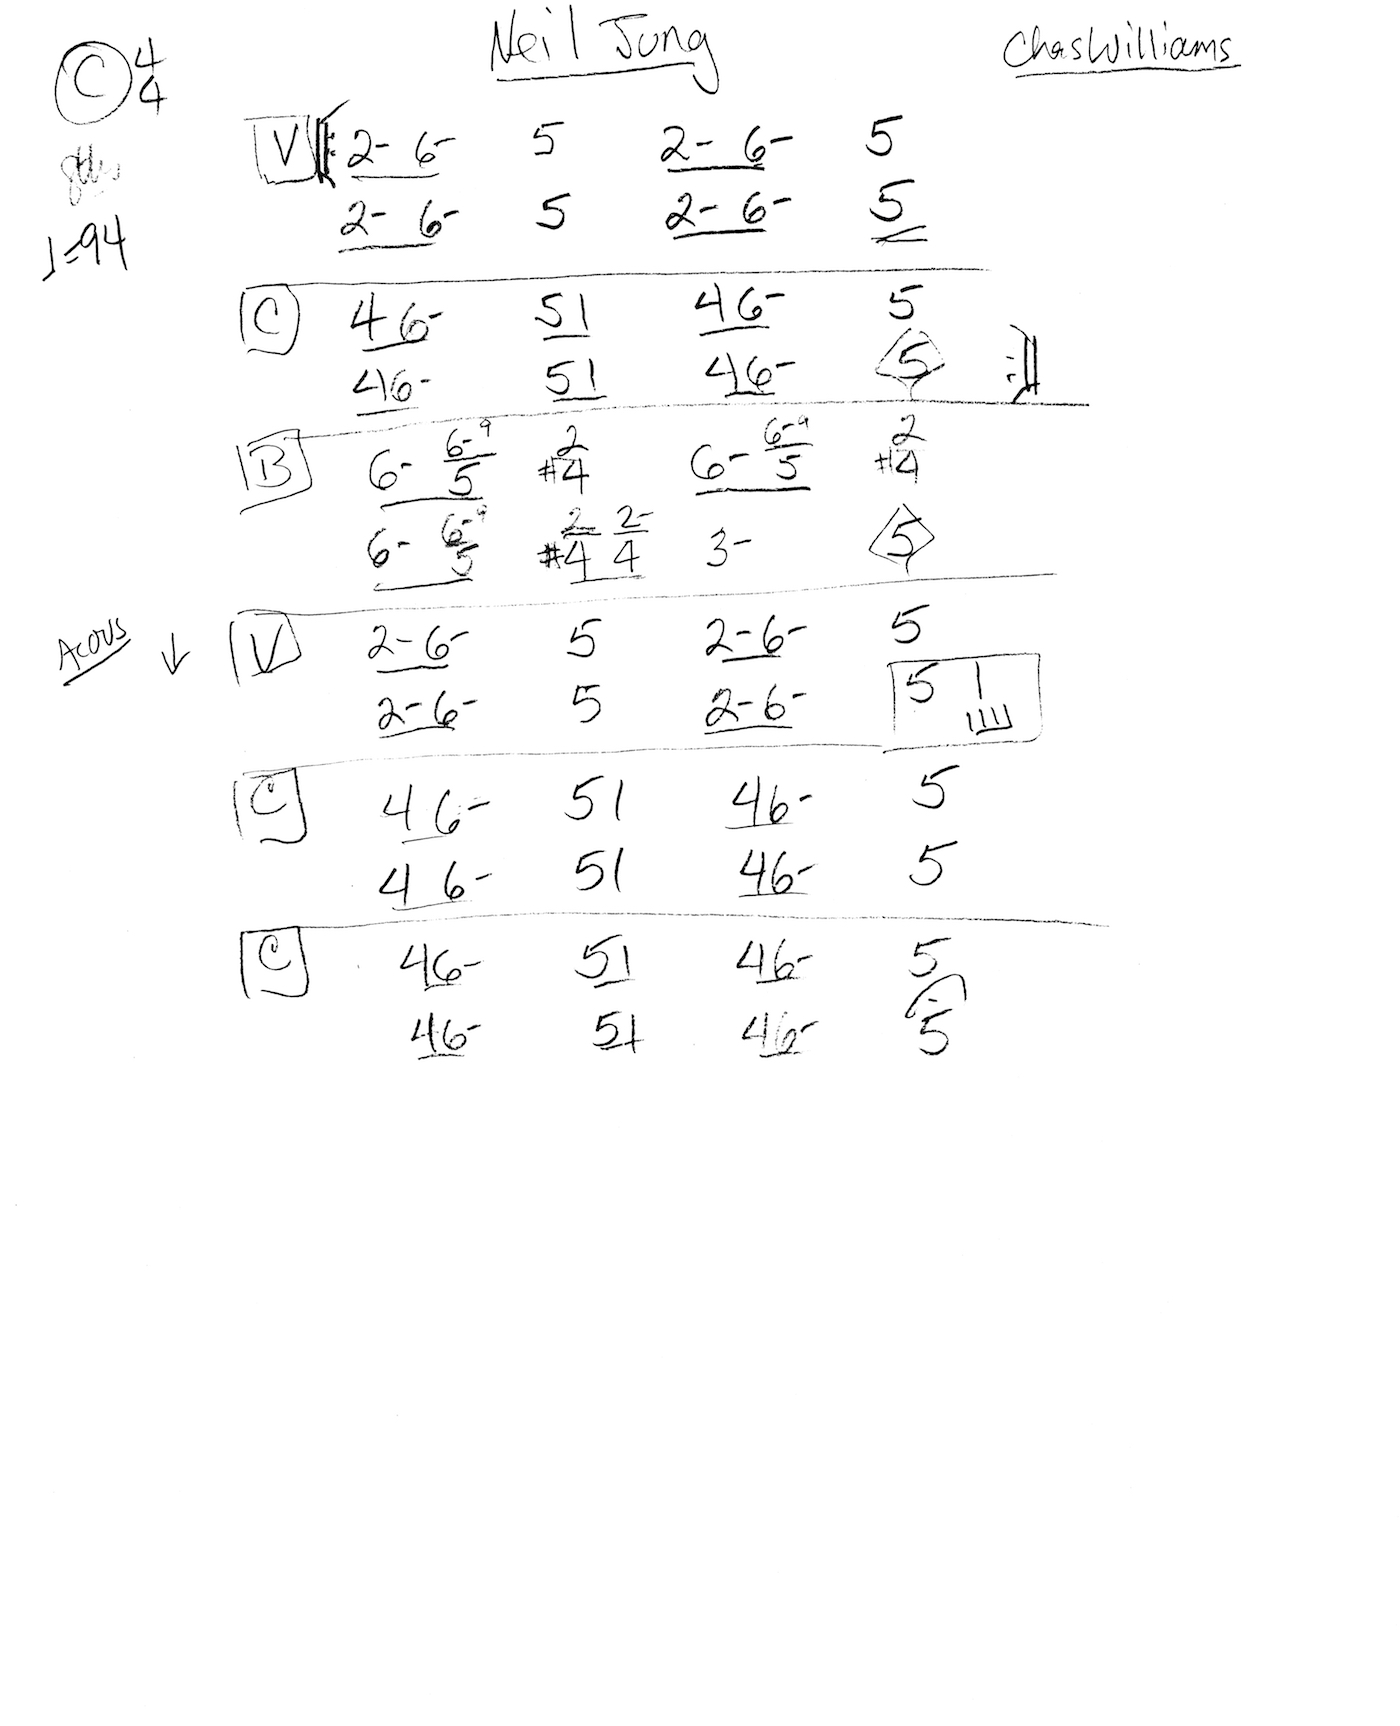 Neil Jung
Chas Williams
C 4/4
♩=94
V 𝄆 2- 6- 5 2- 6- 5
2- 6- 5 2- 6- 5
C 4 6- 5 1 4 6- 5
4 6- 5 1 4 6- 5 :||
B 6- 6-⁹/5 2/#4 6- 6-⁹/5 2/#4
6- 6-⁹/5 2/#4 2-/4 3- 5
Acous ↓ V 2- 6- 5 2- 6- 5
2- 6- 5 2- 6- 5 1
C 4 6- 5 1 4 6- 5
4 6- 5 1 4 6- 5
C 4 6- 5 1 4 6- 5
4 6- 5 1 4 6- 5